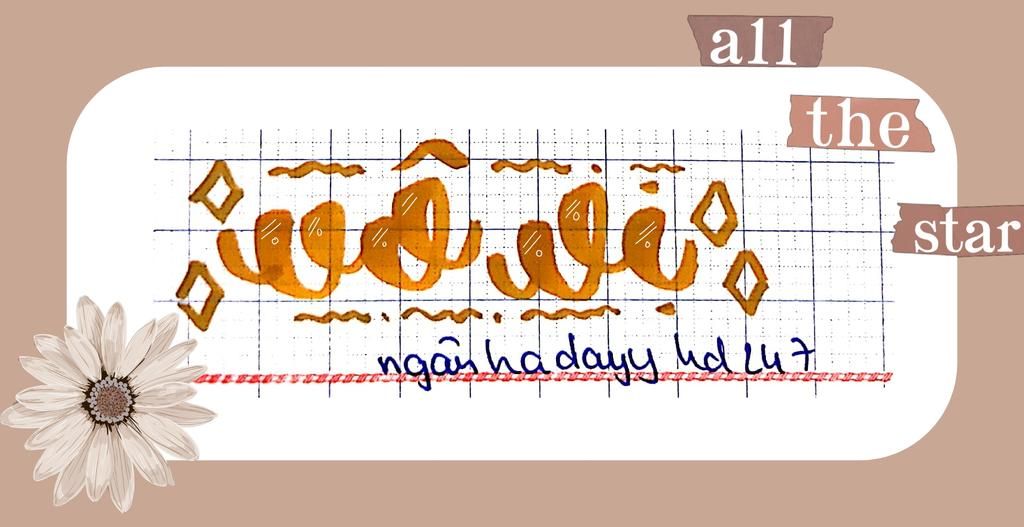 all
the
star
vô vị
ngânhadayy hd247